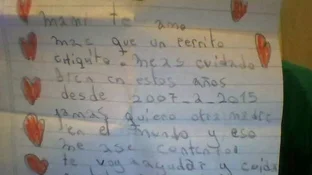 mami te amo
mas que un perrito
chiquito. meas cuidado
bien en estos años
desde 2007_2_2015
jamas quiero otra madre
en el mundo y eso
me ase contento
te voy a ayudar y cuidar